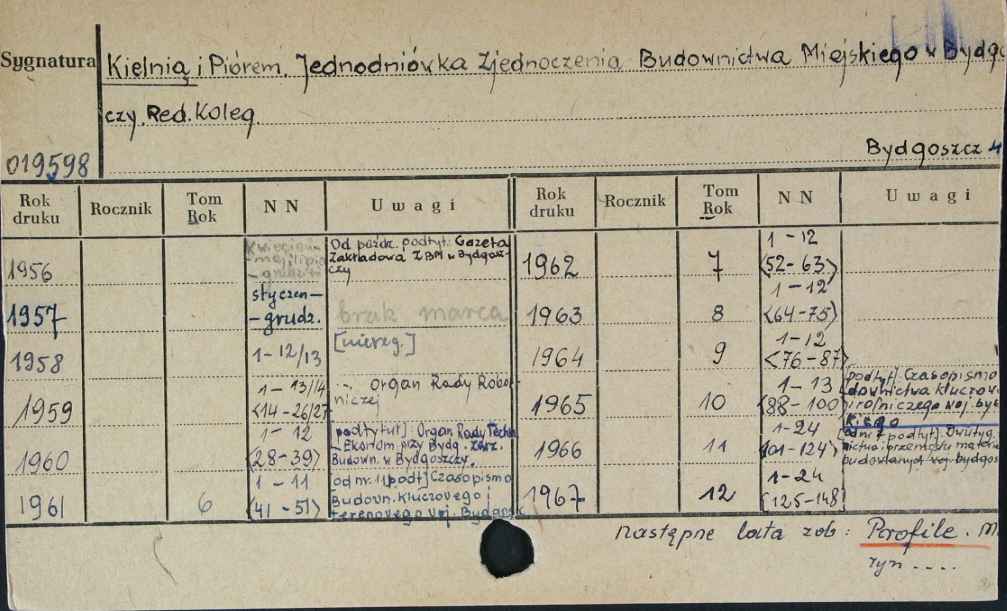 Sygnatura Kielnią i Piórem. Jednodniówka Zjednoczenia Budownictwa Miejskiego w Bydgo
czy. Red. Koleg.
019598 Bydgoszcz 4
Rok druku Rocznik Tom Rok N N Uwagi Rok druku Rocznik Tom Rok N N Uwagi
1956 Kwiecień - maj, lipiec - Od paźdz. podtyt: Gazeta
Zakładowa ZBM w Bydgosz-
czy
1957 styczeń-
-grudz. brak marca
1958 1-12/13 [niereg.]
1959 1-13/14
<14-26/27> -"- Organ Rady Robot-
niczej
1960 1-12
<28-39> podtytuł]: Organ Rady Techn.
-Ekonom. przy Bydg. Zarz.
Budown. w Bydgoszczy.
1961 6 1-11
<41-51> od nr. 1 [podt] Czasopismo
Budown. kluczowego i
terenowego woj. Bydgosk
1962 7 1-12
<52-63>
1963 8 1-12
<64-75>
1964 9 1-12
<76-87>
1965 10 1-13
<88-100> podtyt]. Czasopismo
downictwa kluczow
i rolniczego woj. byd
kiego
1966 11 1-24
<101-124> [od nr 7 podtyt]. Dwutyg
nictwa i przemysłu mater
budowlanych woj. bydgos
1967 12 1-24
[125-148]
Następne lata zob: Profile. M.
ryn ....